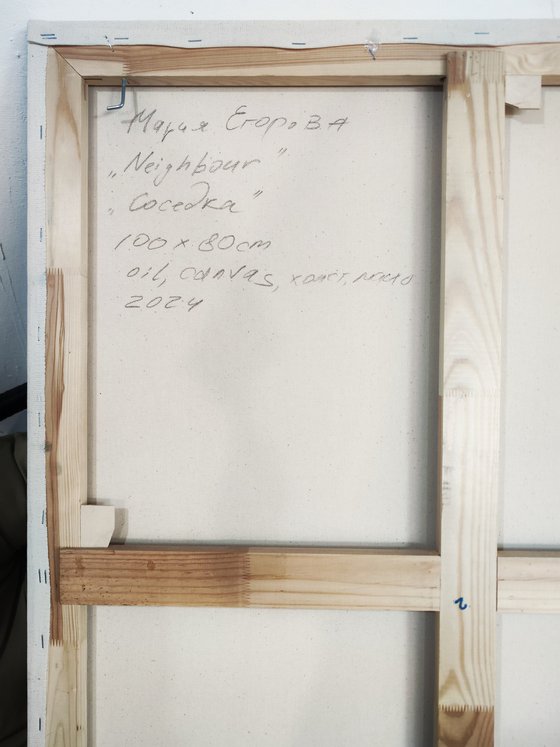 Мария Егорова
„Neighbour"
„Соседка"
100 x 80 cm
oil, canvas, холст, масло
2024
2